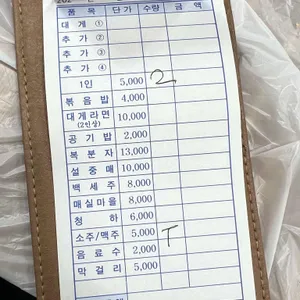 품 목 단 가 수량 금 액
대 게 ①
추 가 ②
추 가 ③
추 가 ④
1인 5,000 2
볶 음 밥 4,000
대게라면 10,000
(2인상)
공 기 밥 2,000
복 분 자 13,000
설 중 매 10,000
백 세 주 8,000
매실마을 8,000
청 하 6,000
소주/맥주 5,000 T
음 료 수 2,000
막 걸 리 5,000